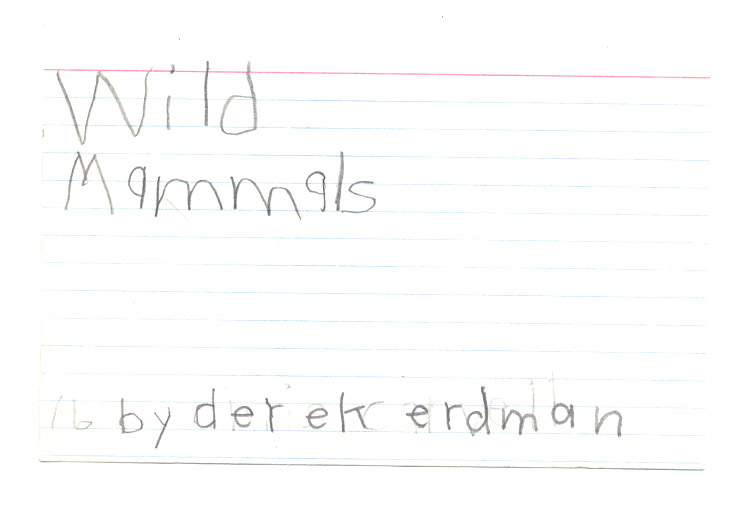 Wild
Mammals
by derek erdman